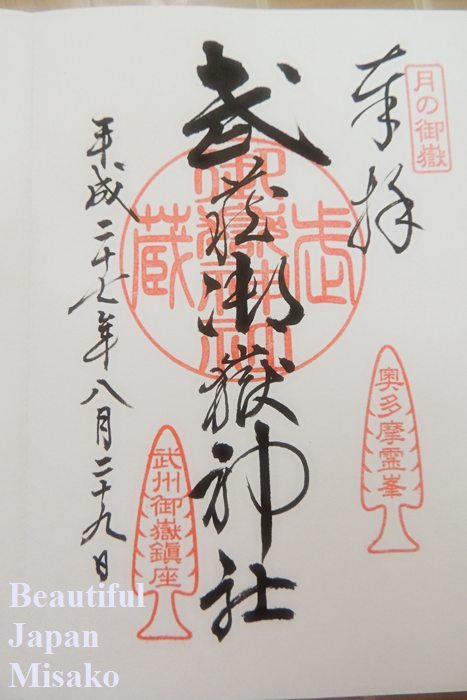 月の御嶽
奉拝
奥多摩霊峯
武蔵御嶽神社
武
御嶽神社
蔵
武州御嶽鎮座
平成二十七年八月二十九日
Beautiful
Japan
Misako